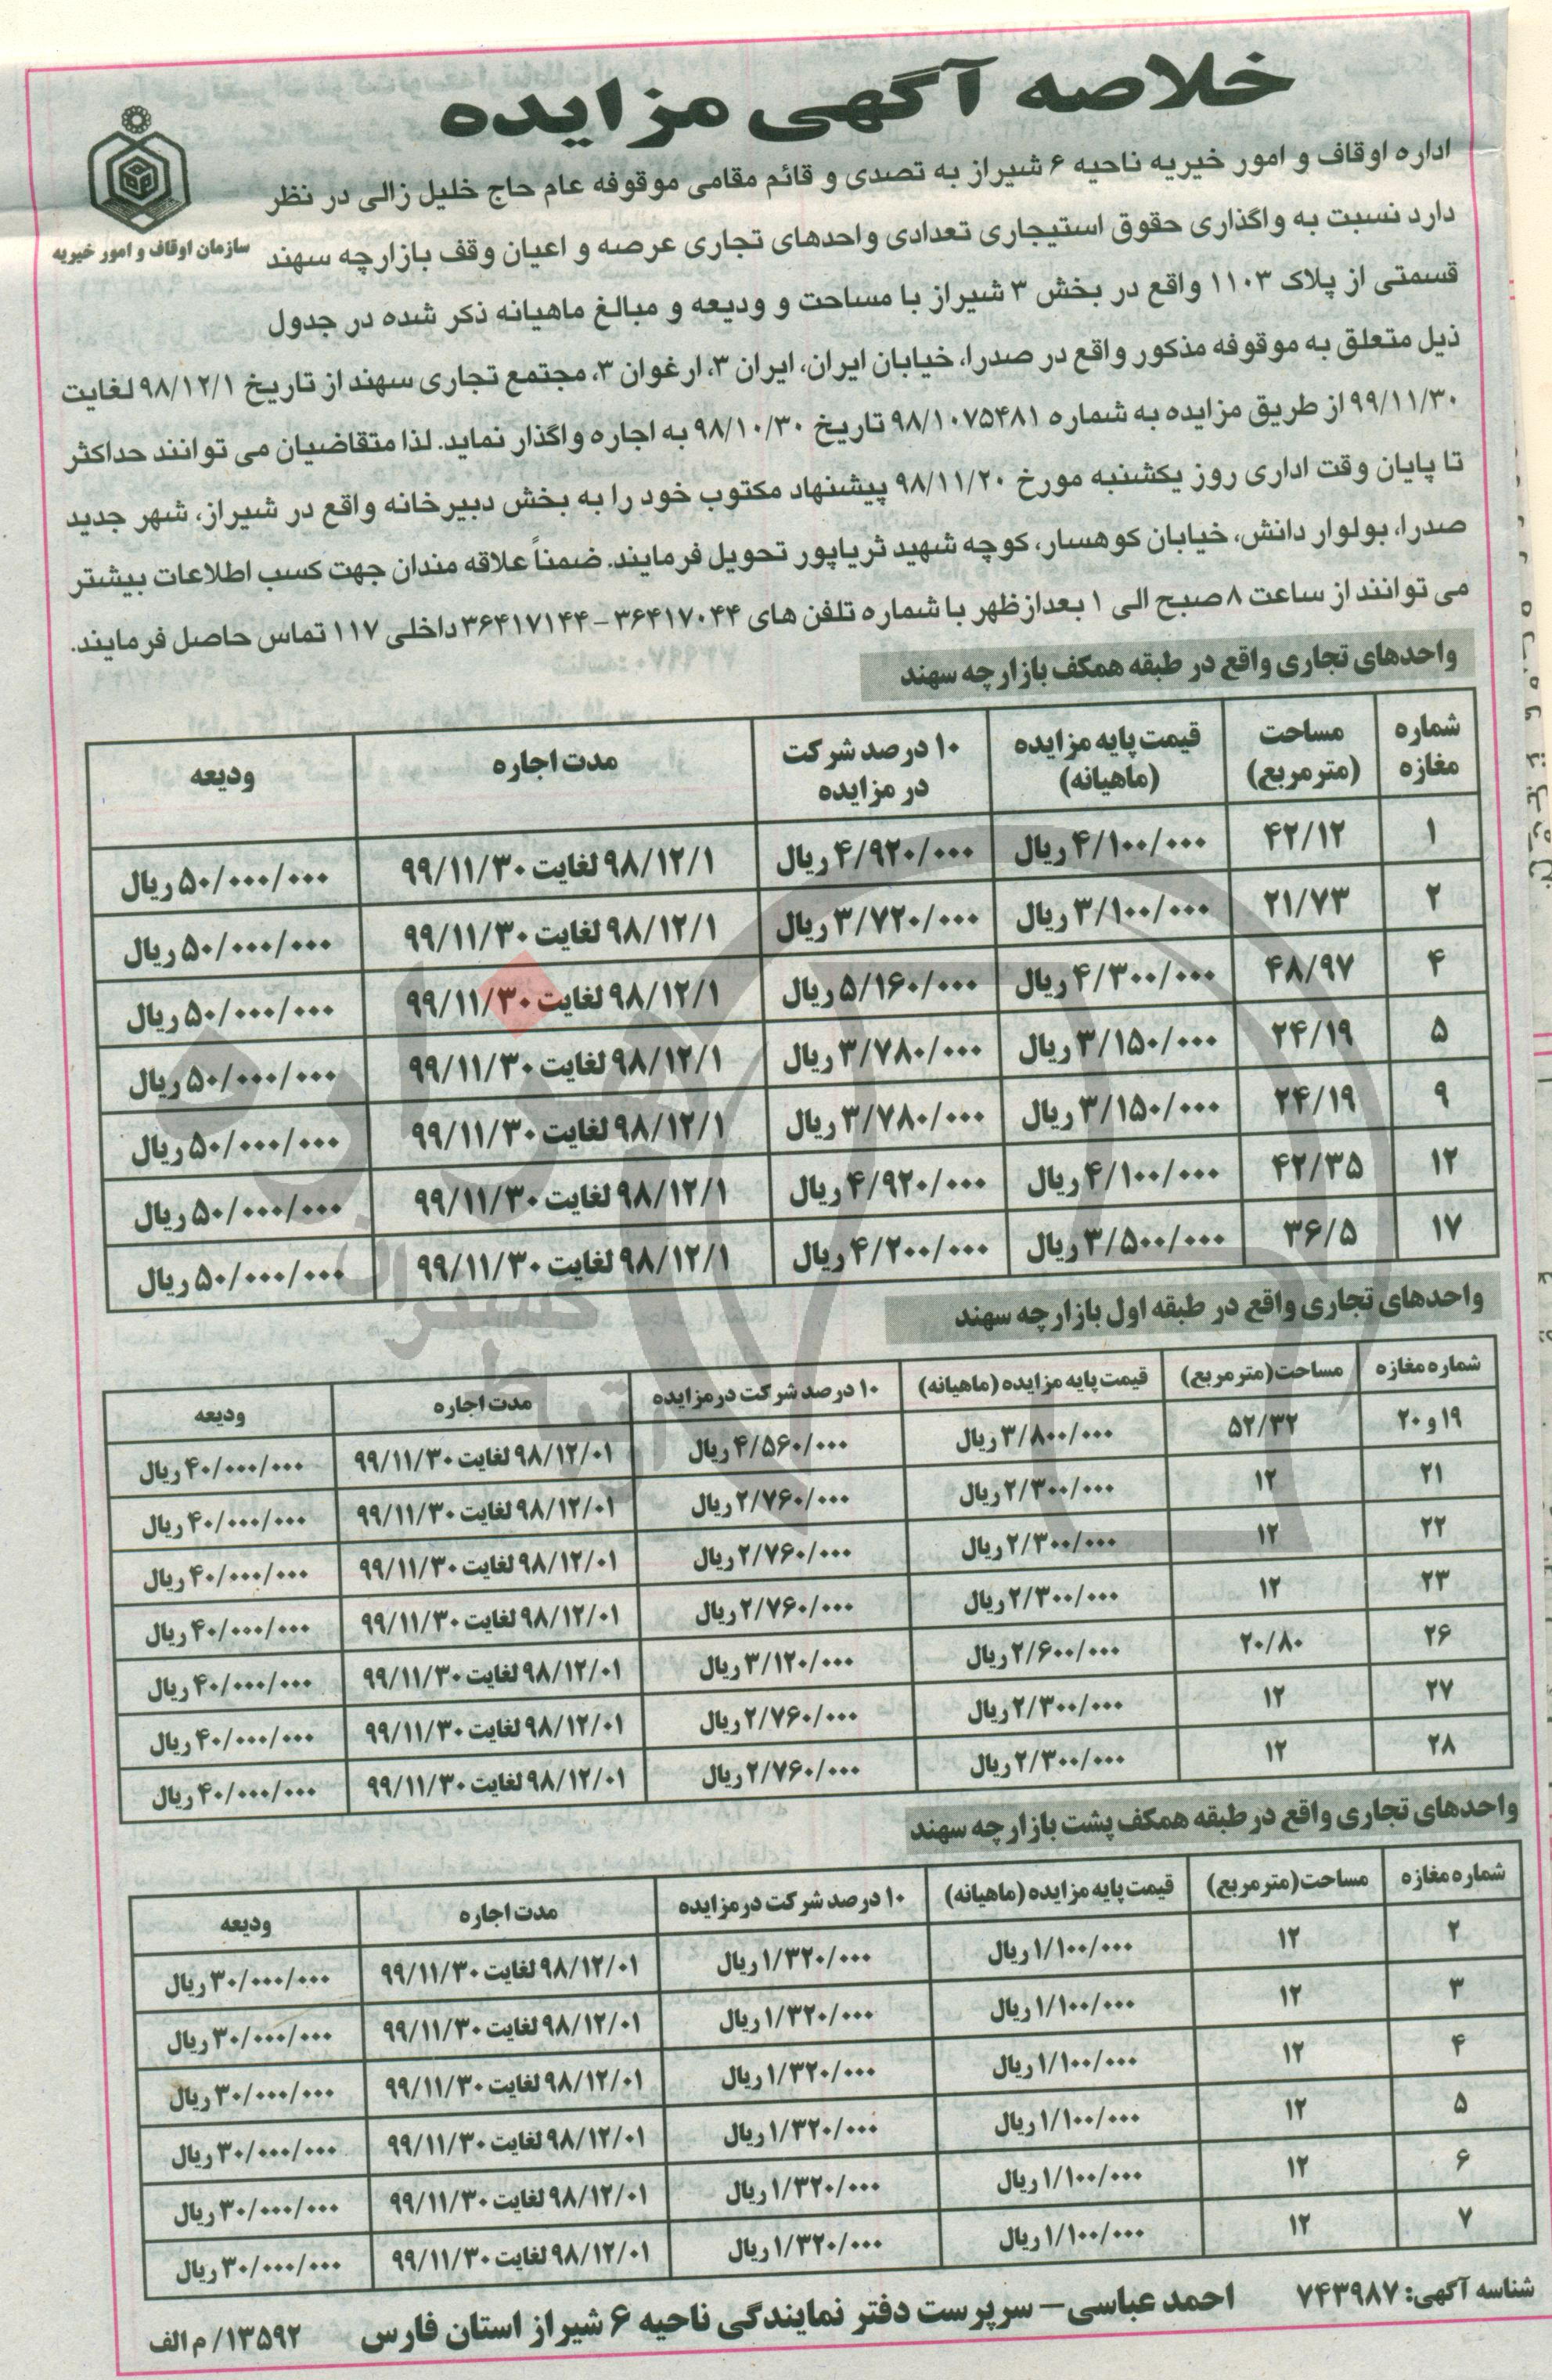 خلاصه آگهی مزایده
سازمان اوقاف و امور خیریه
اداره اوقاف و امور خیریه ناحیه ۶ شیراز به تصدی و قائم مقامی موقوفه عام حاج خلیل زالی در نظر
دارد نسبت به واگذاری حقوق استیجاری تعدادی واحدهای تجاری عرصه و اعیان وقف بازارچه سهند
قسمتی از پلاک ۱۱۰۳ واقع در بخش ۳ شیراز با مساحت و ودیعه و مبالغ ماهیانه ذکر شده در جدول
ذیل متعلق به موقوفه مذکور واقع در صدرا، خیابان ایران، ایران ۳، ارغوان ۳، مجتمع تجاری سهند از تاریخ ۹۸/۱۲/۱ لغایت
۹۹/۱۱/۳۰ از طریق مزایده به شماره ۹۸/۱۰۷۵۴۸۱ تاریخ ۹۸/۱۰/۳۰ به اجاره واگذار نماید. لذا متقاضیان می توانند حداکثر
تا پایان وقت اداری روز یکشنبه مورخ ۹۸/۱۱/۲۰ پیشنهاد مکتوب خود را به بخش دبیرخانه واقع در شیراز، شهر جدید
صدرا، بولوار دانش، خیابان کوهسار، کوچه شهید ثریاپور تحویل فرمایند. ضمناً علاقه مندان جهت کسب اطلاعات بیشتر
می توانند از ساعت ۸ صبح الی ۱ بعدازظهر با شماره تلفن های ۳۶۴۱۷۰۴۴ - ۳۶۴۱۷۱۴۴ داخلی ۱۱۷ تماس حاصل فرمایند.
واحدهای تجاری واقع در طبقه همکف بازارچه سهند
شماره مغازه مساحت (مترمربع) قیمت پایه مزایده (ماهیانه) ۱۰ درصد شرکت در مزایده مدت اجاره ودیعه
۱ ۴۲/۱۲ ۴/۱۰۰/۰۰۰ ریال ۴/۹۲۰/۰۰۰ ریال ۹۸/۱۲/۱ لغایت ۹۹/۱۱/۳۰ ۵۰/۰۰۰/۰۰۰ ریال
۲ ۲۱/۷۳ ۳/۱۰۰/۰۰۰ ریال ۳/۷۲۰/۰۰۰ ریال ۹۸/۱۲/۱ لغایت ۹۹/۱۱/۳۰ ۵۰/۰۰۰/۰۰۰ ریال
۴ ۴۸/۹۷ ۴/۳۰۰/۰۰۰ ریال ۵/۱۶۰/۰۰۰ ریال ۹۸/۱۲/۱ لغایت ۹۹/۱۱/۳۰ ۵۰/۰۰۰/۰۰۰ ریال
۵ ۲۴/۱۹ ۳/۱۵۰/۰۰۰ ریال ۳/۷۸۰/۰۰۰ ریال ۹۸/۱۲/۱ لغایت ۹۹/۱۱/۳۰ ۵۰/۰۰۰/۰۰۰ ریال
۹ ۲۴/۱۹ ۳/۱۵۰/۰۰۰ ریال ۳/۷۸۰/۰۰۰ ریال ۹۸/۱۲/۱ لغایت ۹۹/۱۱/۳۰ ۵۰/۰۰۰/۰۰۰ ریال
۱۲ ۴۲/۳۵ ۴/۱۰۰/۰۰۰ ریال ۴/۹۲۰/۰۰۰ ریال ۹۸/۱۲/۱ لغایت ۹۹/۱۱/۳۰ ۵۰/۰۰۰/۰۰۰ ریال
۱۷ ۳۶/۵ ۳/۵۰۰/۰۰۰ ریال ۴/۲۰۰/۰۰۰ ریال ۹۸/۱۲/۱ لغایت ۹۹/۱۱/۳۰ ۵۰/۰۰۰/۰۰۰ ریال
واحدهای تجاری واقع در طبقه اول بازارچه سهند
شماره مغازه مساحت (مترمربع) قیمت پایه مزایده (ماهیانه) ۱۰ درصد شرکت در مزایده مدت اجاره ودیعه
۱۹ و ۲۰ ۵۲/۳۲ ۳/۸۰۰/۰۰۰ ریال ۴/۵۶۰/۰۰۰ ریال ۹۸/۱۲/۰۱ لغایت ۹۹/۱۱/۳۰ ۴۰/۰۰۰/۰۰۰ ریال
۲۱ ۱۲ ۲/۳۰۰/۰۰۰ ریال ۲/۷۶۰/۰۰۰ ریال ۹۸/۱۲/۰۱ لغایت ۹۹/۱۱/۳۰ ۴۰/۰۰۰/۰۰۰ ریال
۲۲ ۱۲ ۲/۳۰۰/۰۰۰ ریال ۲/۷۶۰/۰۰۰ ریال ۹۸/۱۲/۰۱ لغایت ۹۹/۱۱/۳۰ ۴۰/۰۰۰/۰۰۰ ریال
۲۳ ۱۲ ۲/۳۰۰/۰۰۰ ریال ۲/۷۶۰/۰۰۰ ریال ۹۸/۱۲/۰۱ لغایت ۹۹/۱۱/۳۰ ۴۰/۰۰۰/۰۰۰ ریال
۲۶ ۲۰/۸۰ ۲/۶۰۰/۰۰۰ ریال ۳/۱۲۰/۰۰۰ ریال ۹۸/۱۲/۰۱ لغایت ۹۹/۱۱/۳۰ ۴۰/۰۰۰/۰۰۰ ریال
۲۷ ۱۲ ۲/۳۰۰/۰۰۰ ریال ۲/۷۶۰/۰۰۰ ریال ۹۸/۱۲/۰۱ لغایت ۹۹/۱۱/۳۰ ۴۰/۰۰۰/۰۰۰ ریال
۲۸ ۱۲ ۲/۳۰۰/۰۰۰ ریال ۲/۷۶۰/۰۰۰ ریال ۹۸/۱۲/۰۱ لغایت ۹۹/۱۱/۳۰ ۴۰/۰۰۰/۰۰۰ ریال
واحدهای تجاری واقع در طبقه همکف پشت بازارچه سهند
شماره مغازه مساحت (مترمربع) قیمت پایه مزایده (ماهیانه) ۱۰ درصد شرکت در مزایده مدت اجاره ودیعه
۲ ۱۲ ۱/۱۰۰/۰۰۰ ریال ۱/۳۲۰/۰۰۰ ریال ۹۸/۱۲/۰۱ لغایت ۹۹/۱۱/۳۰ ۳۰/۰۰۰/۰۰۰ ریال
۳ ۱۲ ۱/۱۰۰/۰۰۰ ریال ۱/۳۲۰/۰۰۰ ریال ۹۸/۱۲/۰۱ لغایت ۹۹/۱۱/۳۰ ۳۰/۰۰۰/۰۰۰ ریال
۴ ۱۲ ۱/۱۰۰/۰۰۰ ریال ۱/۳۲۰/۰۰۰ ریال ۹۸/۱۲/۰۱ لغایت ۹۹/۱۱/۳۰ ۳۰/۰۰۰/۰۰۰ ریال
۵ ۱۲ ۱/۱۰۰/۰۰۰ ریال ۱/۳۲۰/۰۰۰ ریال ۹۸/۱۲/۰۱ لغایت ۹۹/۱۱/۳۰ ۳۰/۰۰۰/۰۰۰ ریال
۶ ۱۲ ۱/۱۰۰/۰۰۰ ریال ۱/۳۲۰/۰۰۰ ریال ۹۸/۱۲/۰۱ لغایت ۹۹/۱۱/۳۰ ۳۰/۰۰۰/۰۰۰ ریال
۷ ۱۲ ۱/۱۰۰/۰۰۰ ریال ۱/۳۲۰/۰۰۰ ریال ۹۸/۱۲/۰۱ لغایت ۹۹/۱۱/۳۰ ۳۰/۰۰۰/۰۰۰ ریال
شناسه آگهی: ۷۴۳۹۸۷ احمد عباسی - سرپرست دفتر نمایندگی ناحیه ۶ شیراز استان فارس ۱۳۵۹۲/م الف